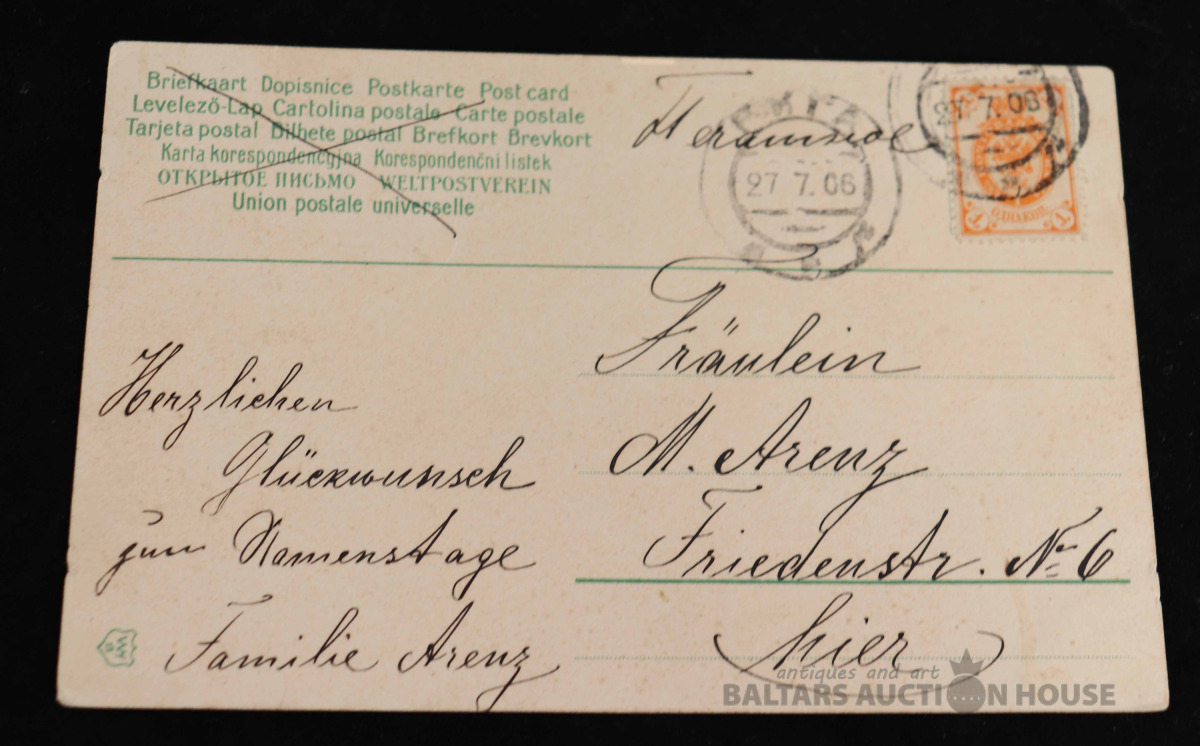 Briefkaart Dopisnice Postkarte Post card
Levelező-Lap Cartolina postale Carte postale
Tarjeta postal Bilhete postal Brefkort Brevkort
Karta korespondencyjna Korespondenční listek
ОТКРЫТОЕ ПИСЬМО WELTPOSTVEREIN
Union postale universelle
РИГА
27 7. 06
27 7. 06
1 ОДНА КОП. 1
Herzlichen
Glückwunsch
zum Namenstage
Familie Arenz
Fräulein
M. Arenz
Friedenstr. № 6
hier
antiques and art
BALTARS AUCTION HOUSE